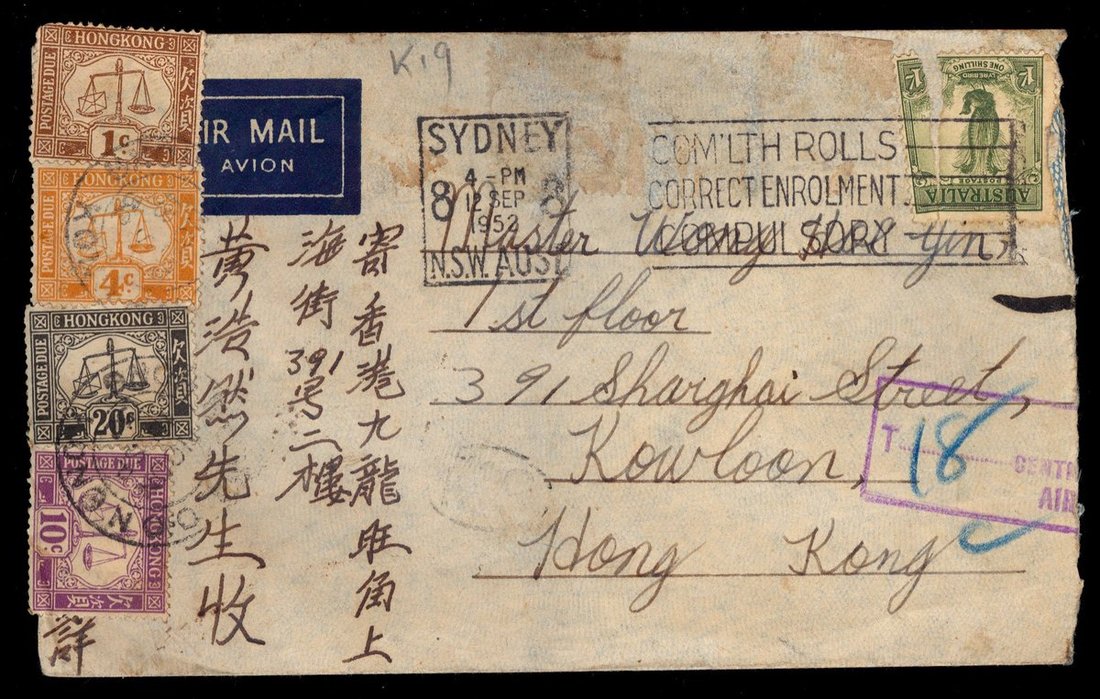 K19
HONGKONG
POSTAGE DUE
欠資
1c
HONGKONG
POSTAGE DUE
4c
HONGKONG
POSTAGE DUE
欠資
20c
POSTAGE DUE
HONGKONG
10c
欠資
AIR MAIL
AVION
SYDNEY
4-PM
8 12 SEP 8
1952
N.S.W. AUST
COM'LTH ROLLS
CORRECT ENROLMENT
COMPULSORY
LYRE BIRD
ONE SHILLING
1/-
1/-
POSTAGE
AUSTRALIA
Master Wong Hoo Yin,
1st floor
391 Shanghai Street,
Kowloon,
Hong Kong
T 18 CENT
AIR
寄香港九龍旺角上
海街391号二樓
黃浩然先生收
詳
KOWLOON